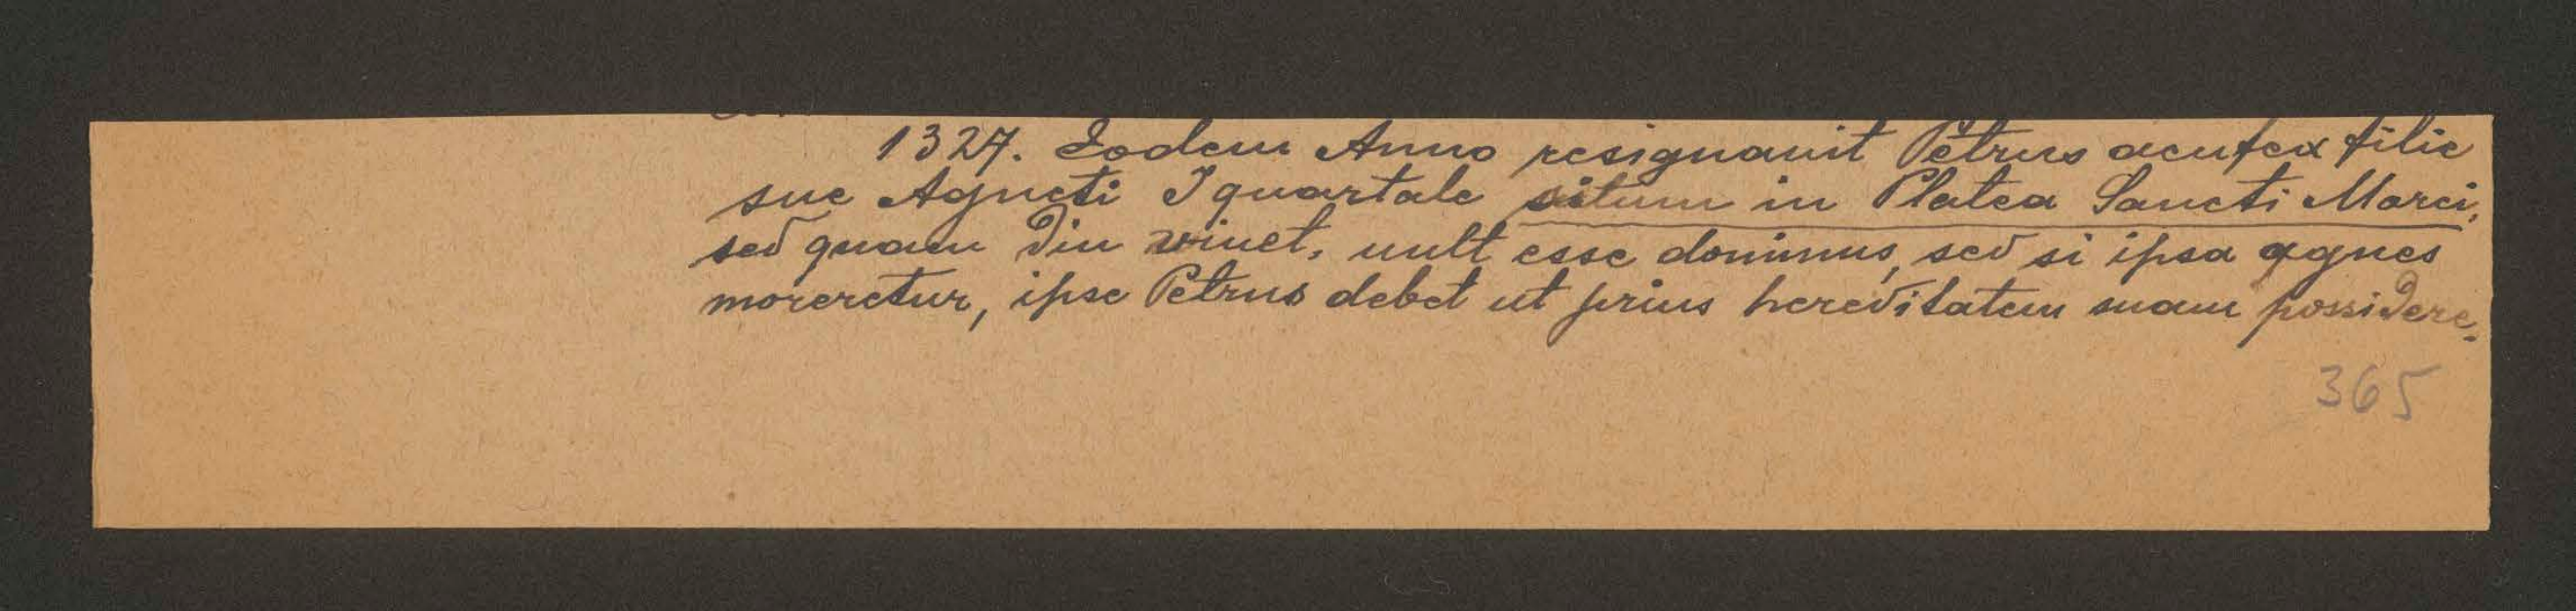 1327. Eodem Anno resignauit Petrus acufex filie
sue Agneti I quartale situm in Platea Sancti Marci,
sed quam diu uiuet, uult esse dominus, sed si ipsa agnes
moreretur, ipse Petrus debet ut prius hereditatem suam possidere.
365